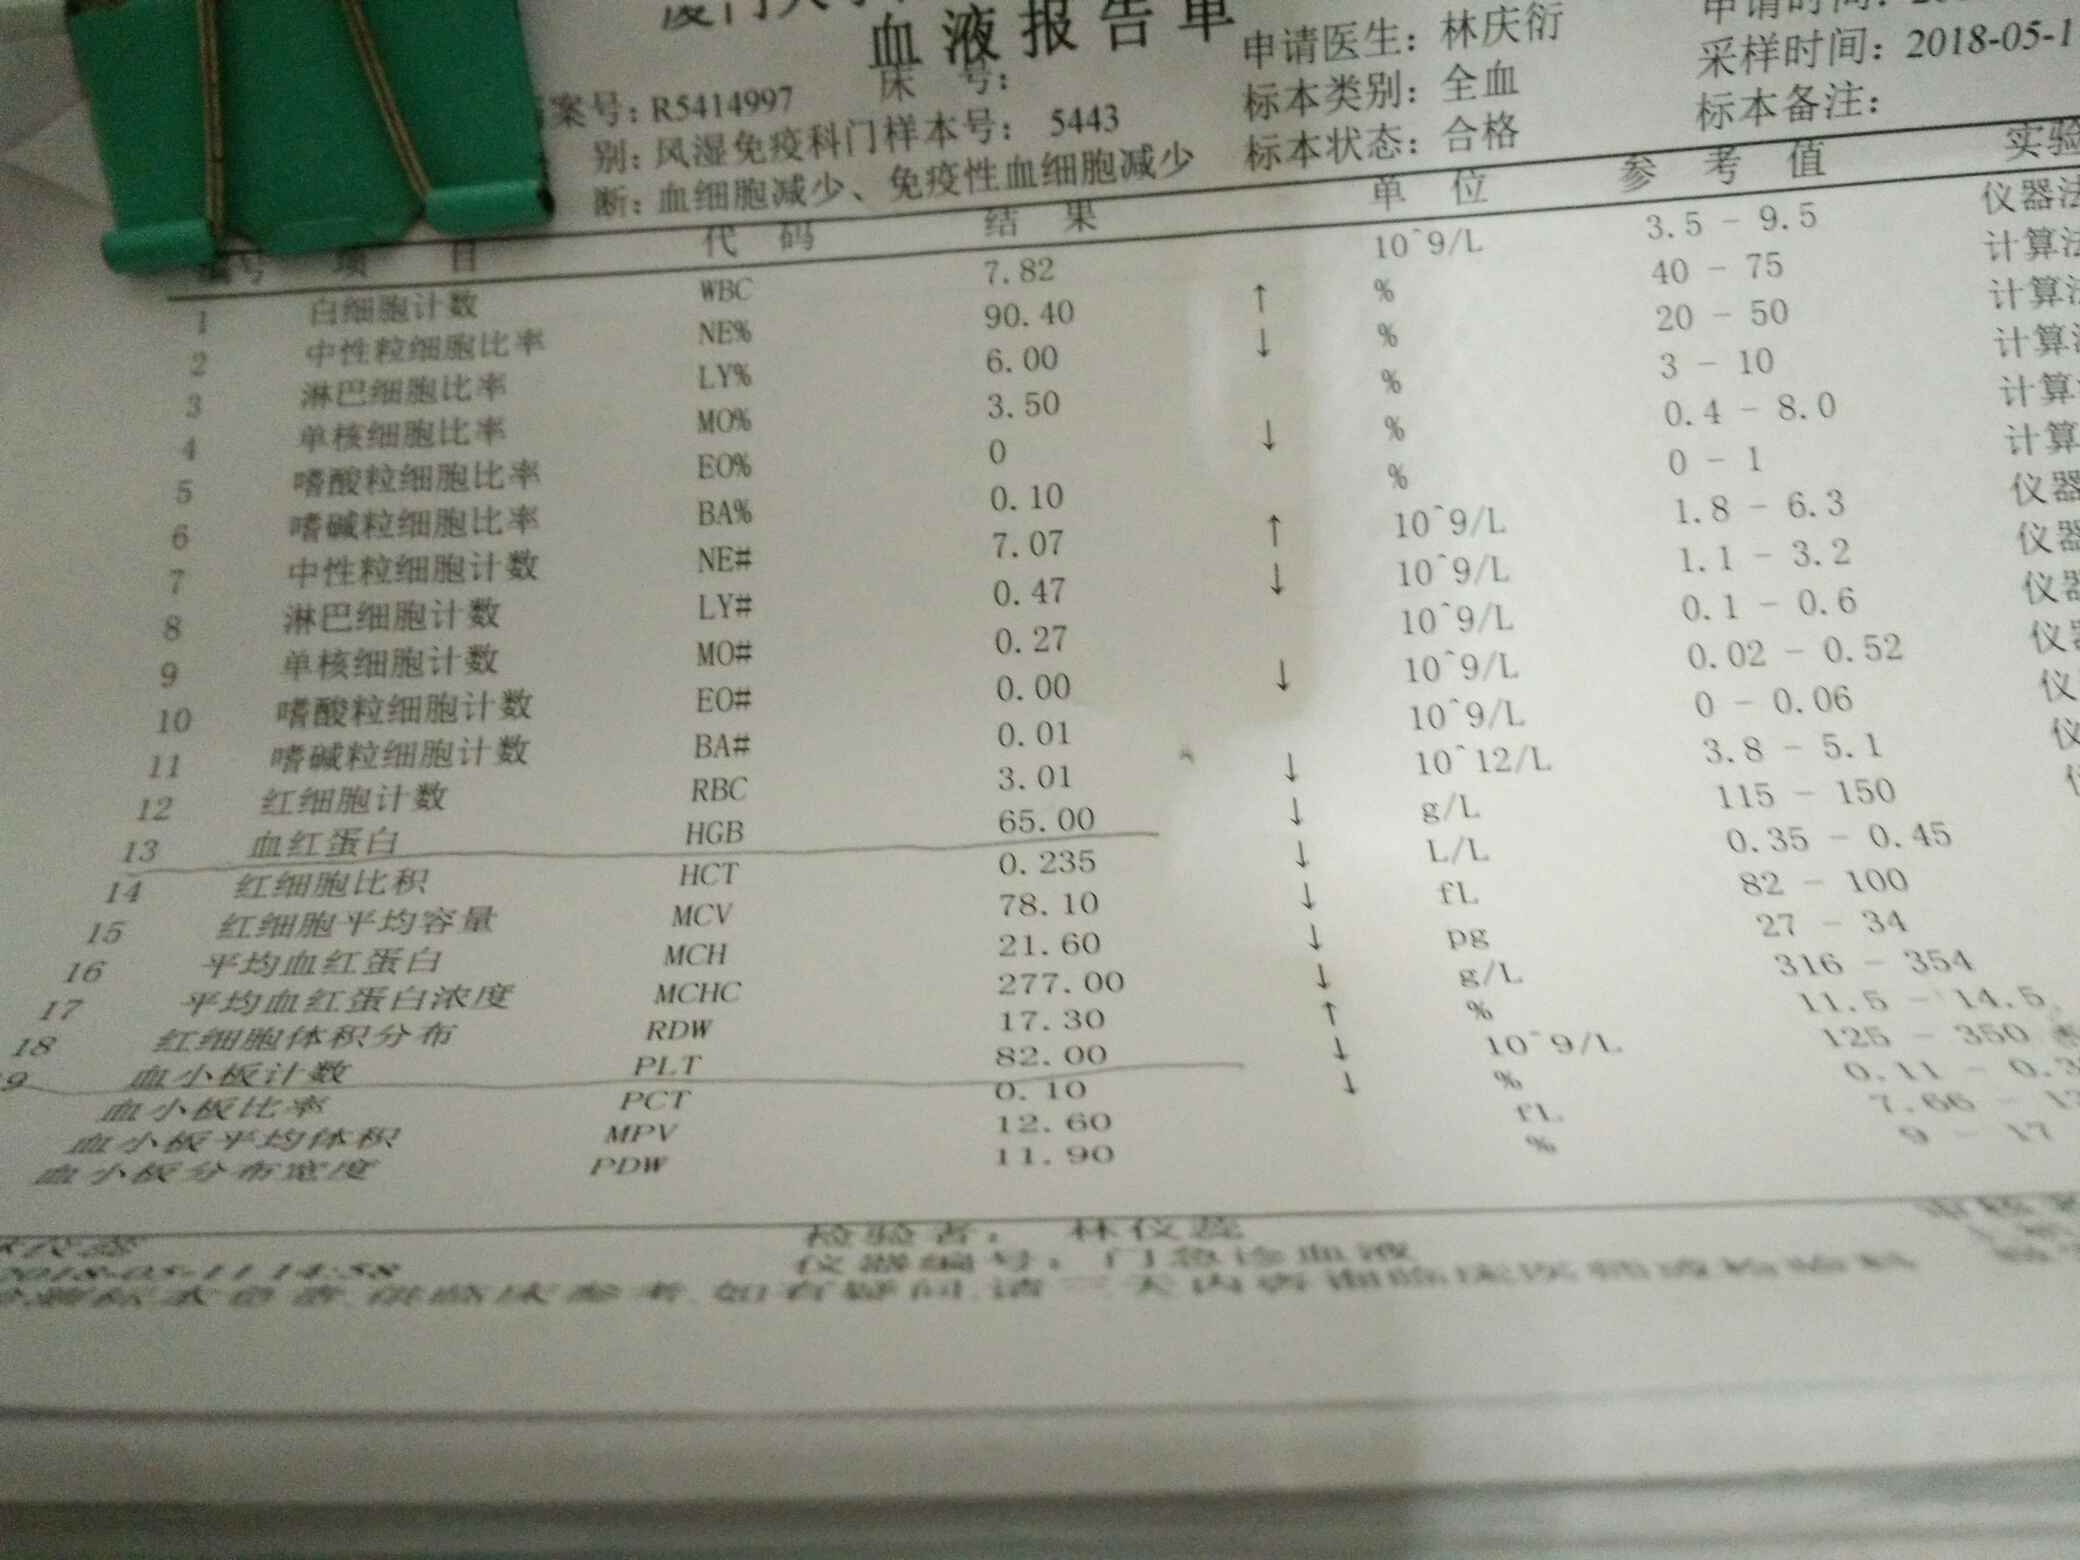 血液报告单
申请医生：林庆衍
采样时间：2018-05-1
案号：R5414997 床 号：
标本类别：全血
标本备注：
别：风湿免疫科门样本号： 5443
标本状态：合格
断：血细胞减少、免疫性血细胞减少
编号 项 目 代 码 结 果 单 位 参 考 值 实验
1 白细胞计数 WBC 7.82 10^9/L 3.5 - 9.5 仪器法
2 中性粒细胞比率 NE% 90.40 ↑ % 40 - 75 计算法
3 淋巴细胞比率 LY% 6.00 ↓ % 20 - 50 计算法
4 单核细胞比率 MO% 3.50 % 3 - 10 计算法
5 嗜酸粒细胞比率 EO% 0 ↓ % 0.4 - 8.0 计算
6 嗜碱粒细胞比率 BA% 0.10 % 0 - 1 计算
7 中性粒细胞计数 NE# 7.07 ↑ 10^9/L 1.8 - 6.3 仪器
8 淋巴细胞计数 LY# 0.47 ↓ 10^9/L 1.1 - 3.2 仪器
9 单核细胞计数 MO# 0.27 10^9/L 0.1 - 0.6 仪器
10 嗜酸粒细胞计数 EO# 0.00 ↓ 10^9/L 0.02 - 0.52 仪器
11 嗜碱粒细胞计数 BA# 0.01 10^9/L 0 - 0.06 仪
12 红细胞计数 RBC 3.01 ↓ 10^12/L 3.8 - 5.1 仪
13 血红蛋白 HGB 65.00 ↓ g/L 115 - 150
14 红细胞比积 HCT 0.235 ↓ L/L 0.35 - 0.45
15 红细胞平均容量 MCV 78.10 ↓ fL 82 - 100
16 平均血红蛋白 MCH 21.60 ↓ pg 27 - 34
17 平均血红蛋白浓度 MCHC 277.00 ↓ g/L 316 - 354
18 红细胞体积分布 RDW 17.30 ↑ % 11.5 - 14.5
9 血小板计数 PLT 82.00 ↓ 10^9/L 125 - 350
血小板比率 PCT 0.10 ↓ % 0.11 - 0.3
血小板平均体积 MPV 12.60 fL 7.66 - 1
血小板分布宽度 PDW 11.90 % 9 - 17
检验者： 林仪
2018-05-11 14:58 仪器编号：门急诊血液
标本负责，供临床参考，如有疑问，请三天内